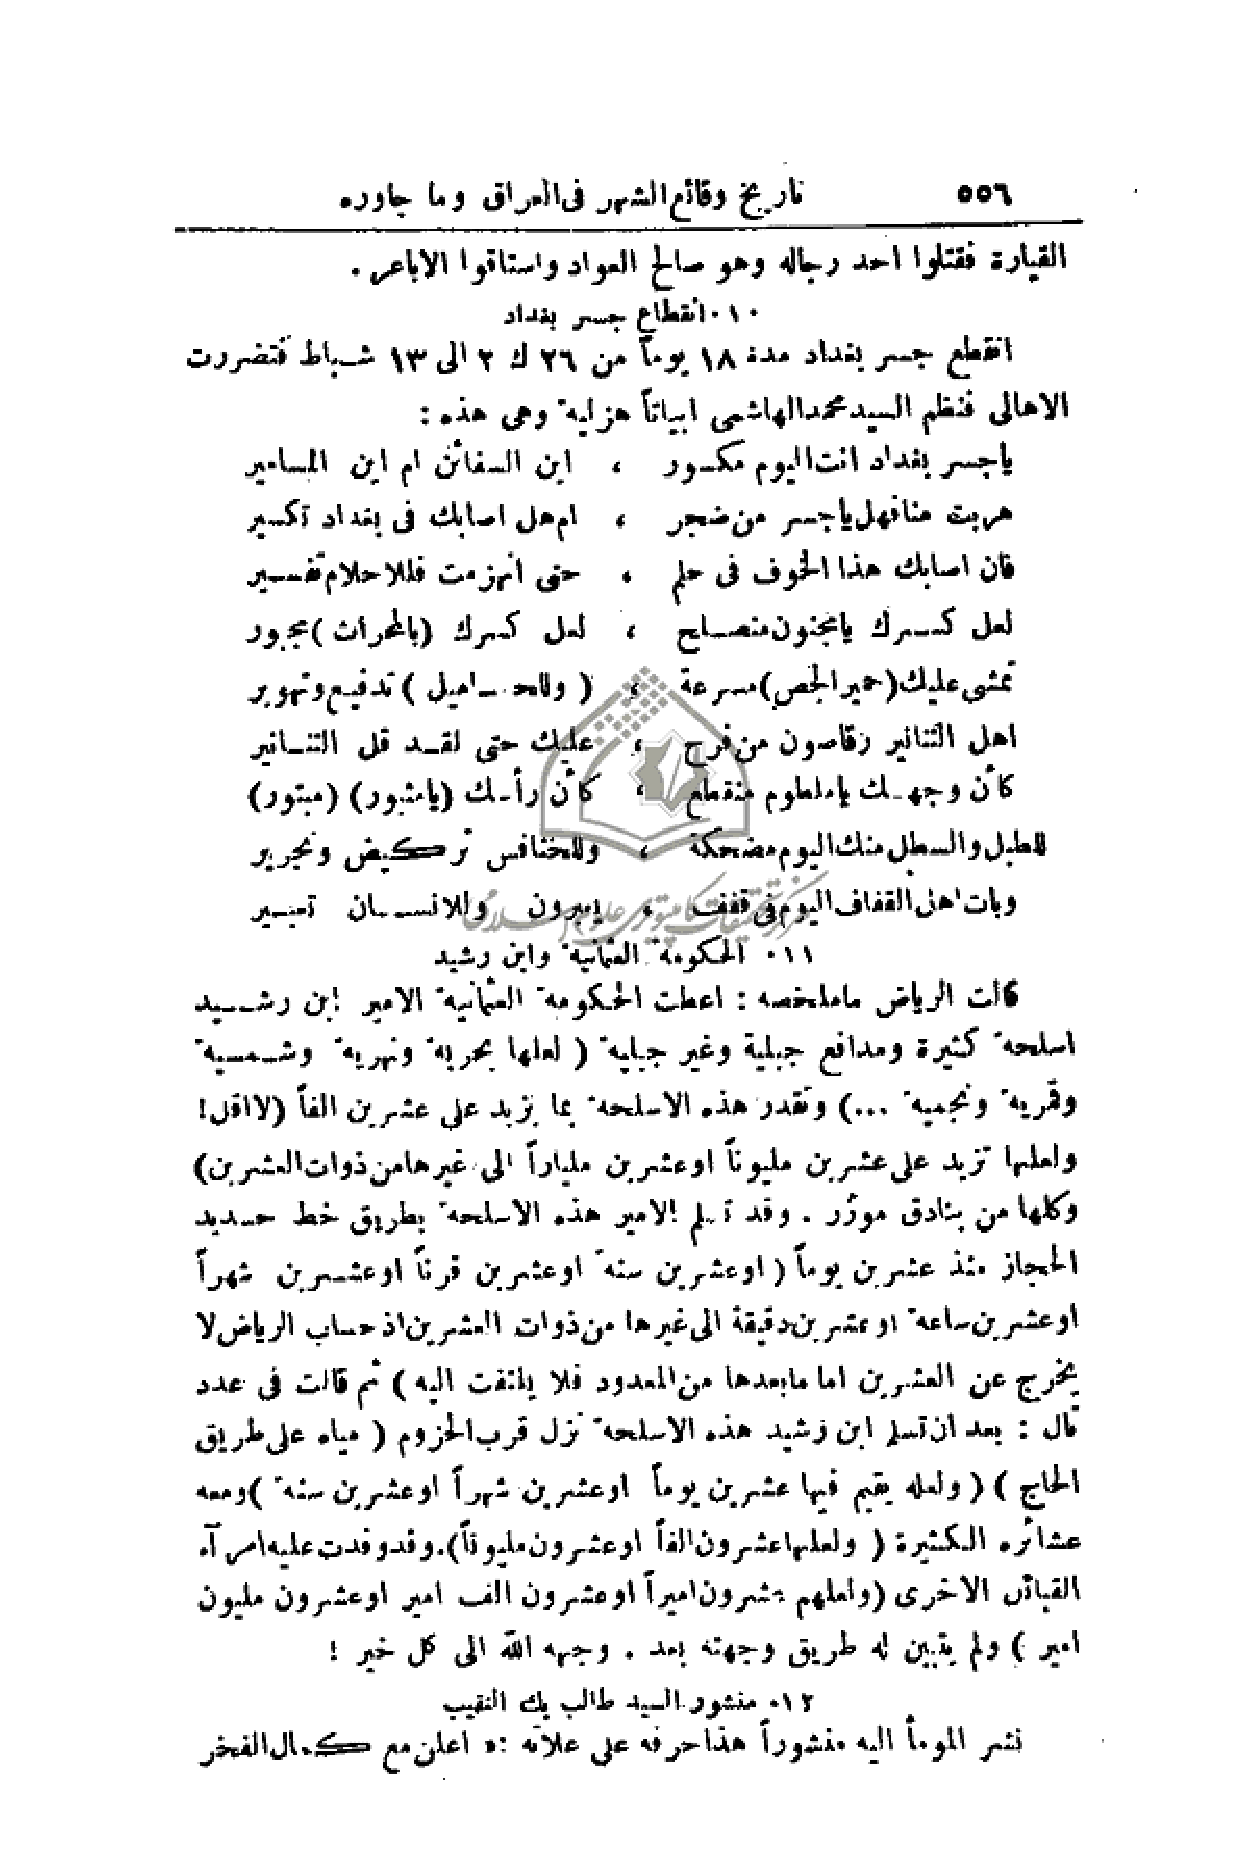 ٥٥٦ تاريخ وقائع الشهر فى العراق وما جاوره
القيارة فقتلوا احد رجاله وهو صالح العواد واستاقوا الاباعر .
١٠. انقطاع جسر بغداد
انقطع جسر بغداد مدة ١٨ يوماً من ٢٦ ك ٢ الى ١٣ شباط فتضررت
الاهالى فنظم السيد محمد الهاشمى ابياتاً هزلية وهى هذه :
ياجسر بغداد انت اليوم مكسور ، اين السفائن ام اين المسامير
هربت منا فهل ياجسر من ضجر ، ام هل اصابك فى بغداد تكسير
فان اصابك هذا الخوف فى حلم ، حتى انهزمت فللاحلام تفسير
لعل كسرك يامجنون منصلح ، لعل كسرك (بالمحراث) مجبور
تمشى عليك (حمير الجص) مسرعة ، ( وللحماميل ) تدفيع وتهوير
اهل التنانير رقاصون من فرح ، عليك حتى لقد قل التنانير
كأن وجهك ياملطوم منقطع ، كأن رأسك (يامثبور) (مبتور)
للطبل والسطل منك اليوم مضحكة ، وللخنافس تركيض وتجرير
وبات اهل القفاف اليوم فى قفف ، يعبرون وللانسان تعبير
١١. الحكومة العثمانية وابن رشيد
قالت الرياض ماملخصه : اعطت الحكومة العثمانية الامير ابن رشيد
اسلحة كثيرة ومدافع جبلية وغير جبلية ( لعلها بحرية ونهرية وشمسية
وقمرية ونجمية ...) وتقدر هذه الاسلحة بما يزيد على عشرين الفاً (لااقل!
ولعلها تزيد على عشرين مليوناً او عشرين ملياراً الى غيرها من ذوات العشرين)
وكلها من بنادق موزر . وقد تسلم الامير هذه الاسلحة بطريق خط حديد
الحجاز منذ عشرين يوماً ( او عشرين سنة او عشرين قرناً او عشرين شهراً
او عشرين ساعة او عشرين دقيقة الى غيرها من ذوات العشرين اذ حساب الرياض لا
يخرج عن العشرين اما مابعدها من المعدود فلا يلتفت اليه ) ثم قالت فى عدد
تال : بعد ان تسلم ابن رشيد هذه الاسلحة نزل قرب الحزوم ( مياه على طريق
الحاج ) ( ولعله يقيم فيها عشرين يوماً او عشرين شهراً او عشرين سنة ) ومعه
عشائره الكثيرة ( ولعلها عشرون الفاً او عشرون مليوناً). وقد وفدت عليه امرآء
القبائل الاخرى (ولعلهم عشرون اميراً او عشرون الف امير او عشرون مليون
امير ) ولم يتبين له طريق وجهته بعد . وجهه الله الى كل خير !
١٢. منشور السيد طالب بك النقيب
نشر المومأ اليه منشوراً هذا حرفه على علاته :« اعلن مع كمال الفخر